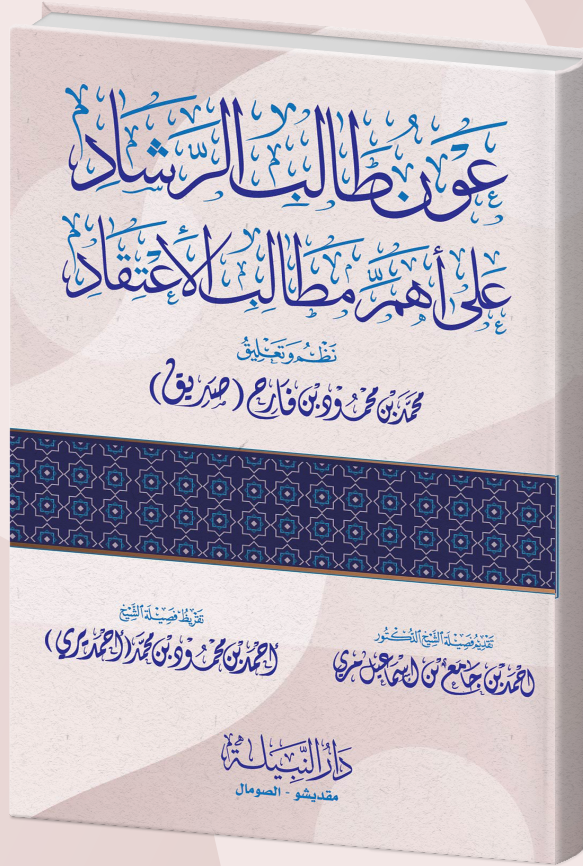 عَوْنُ طَالِبِ الرَّشَادِ
عَلَى أَهَمِّ مَطَالِبِ الِاعْتِقَادِ
نَظْمُ وَتَعْلِيقُ
مُحَمَّد بْن مَحْمُود بْن فَارح (صديق)
تَقْدِيمُ فَضِيلَةِ الشَّيْخِ الدُّكْتُور
أحمد بن جامع بن إسماعيل مري
تَقْرِيظُ فَضِيلَةِ الشَّيْخِ
أحمد بن محمود بن محمد (أحمديري)
دَارُ النَّبِيلَة
مقديشو - الصومال